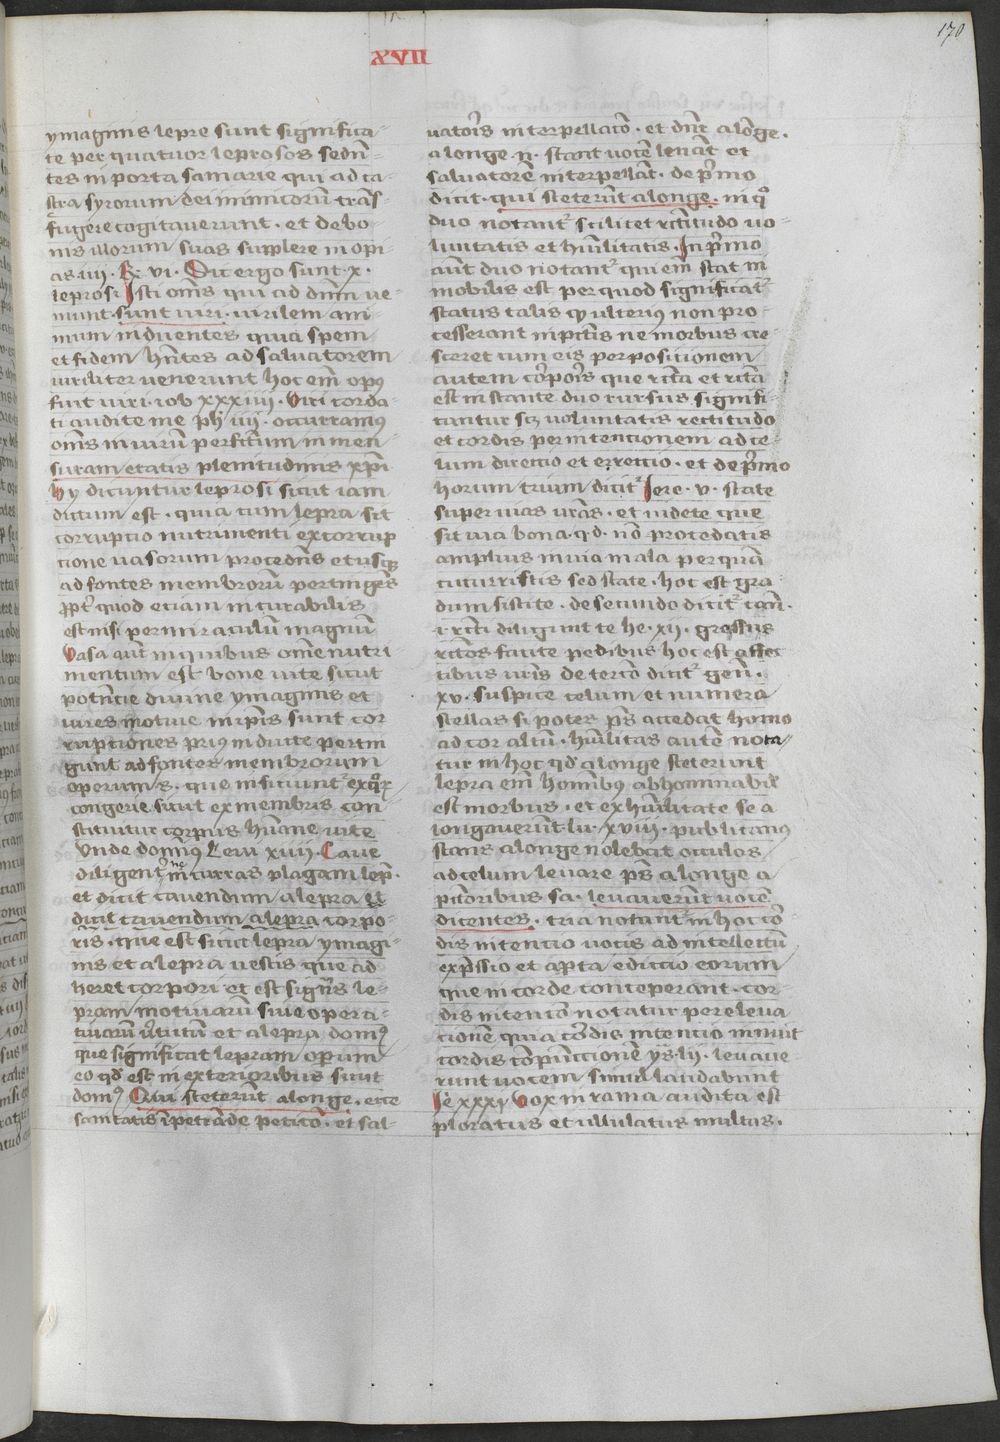 170
XVII
ymaginis lepre sunt significa-
te per quatuor leprosos seden̄-
tes in porta samarie qui ad ca-
stra syrorum dei inimicorū trās-
fugere cogitauerunt · et de bo-
nis illorum suas supplere inopi-
as iiii · R̄ · vi · Dic ergo sunt · x ·
leprosi Isti om̄s qui ad dn̄m ue-
niunt · sunt uiri · uirilem ani-
mum induentes quia spem
et fidem hn̄tes ad saluatorem
uiriliter uenerunt hoc em̄ opus
fuit uiri · iob xxxiiii · Uiri corda-
ti audite me ph̄ iiii · occurramus
om̄s in uirum perfc̄tum in men-
suram etatis plenitudinis xp̄i
hy dicuntur leprosi sicut iam
dictum est · quia cum lepra sit
corruptio nutrimenti ex corrup
tione uasorum procedens et usq̄
ad fontes membrorū pertingēs
ꝓpt̄ quod etiam incurabilis
est nisi per miraculū magnum
Uasa aūt in quibus om̄e nutri-
mentum est bone uite sicut
potentie diuine ymaginis et
uires motiue in ip̄is sunt cor
ruptiones prius inducte pertin
gunt ad fontes membrorum
operum · s · que insituunt̄ ex quoꝝ
congerie sicut ex membris con
stituitur corpus hūane uite
Unde domin̄ Leui xiiii · Caue
diligent̄ ne incurras plagam lep̄ ·
et dicit cauendum a lepra et
dicit cauendum a lepra corpo-
ris · que est sicut lepra ymagi-
nis et a lepra uestis que ad
heret corpori et est sign̄s le-
pram motiuarū siue opera-
tiuarū uirtutū et a lepra domꝰ
que significat lepram operum
eo qd̄ est in exterioribus sicut
domꝰ Qui steterūt a longe · ecce
sanitatis īpetrāde peticō · et sal-
uatoris interpellatō · et dn̄r a lōge ·
a longe · n̄ · stant uocē leuāt et
saluatorē interpellāt · de p̄mo
dicit · qui steterūt a longe · in qͦ
duo notant̄ scilicet rc̄titudo uo-
luntatis et hūilitatis · In p̄mo
aūt duo notant̄ qui em̄ stat in
mobilis est per quod significat̄
status talis qͥ ulterius non pro-
cesserant in pct̄is ne morbus cre-
sceret cum eis per positionem
autem corporis que rc̄ta et rc̄ta
est in stante duo rursus signifi-
cantur scꝫ uoluntatis rectitudo
et cordis per intentionem ad ce-
lum directio et errectio · et de p̄mo
horum trium dicit̄ Iere · v · state
super uias urās · et uidete que
sit uia bona · q̄ · d · nō procedatis
amplius in uia mala per quā
cucurristis sed state · hoc est gra
dum sistite · de secundo dicit̄ can̄ ·
i · rc̄ti diligunt te he · xij · gressus
rc̄tos facite pedibus hoc est affec
tibus uris de tercō dicit̄ gen̄ ·
xv · suspice celum et numera
stellas si potes ps̄ accedat homo
ad cor altū · hūilitas autē nota-
tur in hoc qd̄ a longe steterunt
lepra em̄ hominibus abhominabil̄
est morbus · et ex hūilitate se a
longauerūt lu · xviii · publicanus
stans a longe nolebat occulos
ad celum leuare ps̄ a longe a
pct̄oribus sa · leuauerūt uocē
dicentes · tria notant̄ in hoc cō
dis intentio uocis ad intellectū
exp̄ssio et apta edictio eorum
que in corde conceperant · cor-
dis intentō notatur per eleua
cionē quia cōdis intentio innuit
cordis cōpūnctionē ys̄ · lij · leuaue-
runt uocem simul laudabunt
Iē xxxi Uox in rama audita est
ploratus et ullulatus multus ·